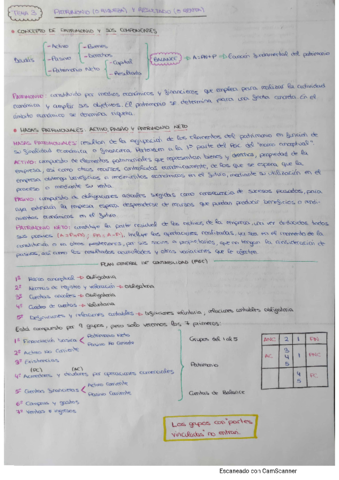 TEMA 3
PATRIMONIO (E. BALANCE) Y RESULTADO (E. GESTIÓN)
CONCEPTO DE PATRIMONIO Y SUS COMPONENTES
- Activo
- Bienes
- Derechos
- Pasivo
- Patrimonio Neto
- Capital
- Resultado
BALANCE
PATRIMONIO: constituido por medios económicos y financieros que emplea para realizar la actividad
económica y cumplir sus objetivos. El patrimonio se determina para una fecha concreta
MASAS PATRIMONIALES: ACTIVO, PASIVO Y PATRIMONIO NETO
MASAS PATRIMONIALES: resultan de la agrupación de los elementos del patrimonio en función de
su finalidad económica o financiera. Pertenece a la 1ª parte del PGC "marco conceptual"
ACTIVO: compuesto de elementos patrimoniales que representan bienes y derechos, propiedad de la
empresa, así como otros recursos, controlados económicamente, de los que se espera que la
empresa obtenga beneficios o rendimientos económicos en el futuro, mediante su utilización en el
proceso o mediante su venta.
PASIVO: compuesto de obligaciones actuales surgidas como consecuencia de sucesos pasados, para
cuya extinción la empresa espera desprenderse de recursos que puedan producir beneficios o
económicos en el futuro.
PATRIMONIO NETO: constituye la parte residual de los activos de la empresa, una vez deducidos todos
sus pasivos. Incluye las aportaciones realizadas, ya sea en el momento de la
constitución o en otros posteriores, por los socios o propietarios, que no tengan la consideración de
pasivos, así como los resultados acumulados y otras variaciones que le afecten.
PLAN GENERAL DE CONTABILIDAD (PGC)
1º Marco conceptual → obligatorio
2º Normas de registro y valoración → obligatorio
3º Cuentas anuales → obligatorio
4º Cuadro de cuentas → voluntario
5º Definiciones y relaciones contables → definiciones voluntario, relaciones contables obligatorio
Está compuesto por 9 grupos, pero solo veremos los 7 primeros:
1º Financiación básica
Patrimonio Neto
Pasivo No Corriente
2º Activo no Corriente
3º Existencias
(AC)
(PC)
4º Acreedores y deudores por operaciones comerciales
5º Cuentas financieras
Activo Corriente
Pasivo Corriente
6º Compras y gastos
7º Ventas e ingresos
Grupos del 1 al 5
Patrimonio
Cuentas de Balance
ANC
2
1
PN
AC
3
4
5
1
PNC
4
5
PC
Los grupos con partes
vinculadas no entran.
Escaneado con CamScanner